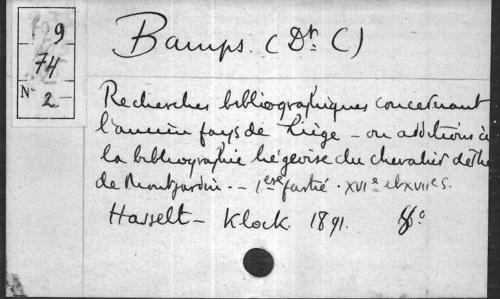 9
74
N° 2
Bamps. (Dr. C)
Recherches bibliographiques concernant
l'ancien pays de Liège - ou additions à
la bibliographie liégeoise du chevalier de The
de Montjardin. - 1ere partie. XVIe et XVIIe s.
Hasselt - Klock. 1891. 8°